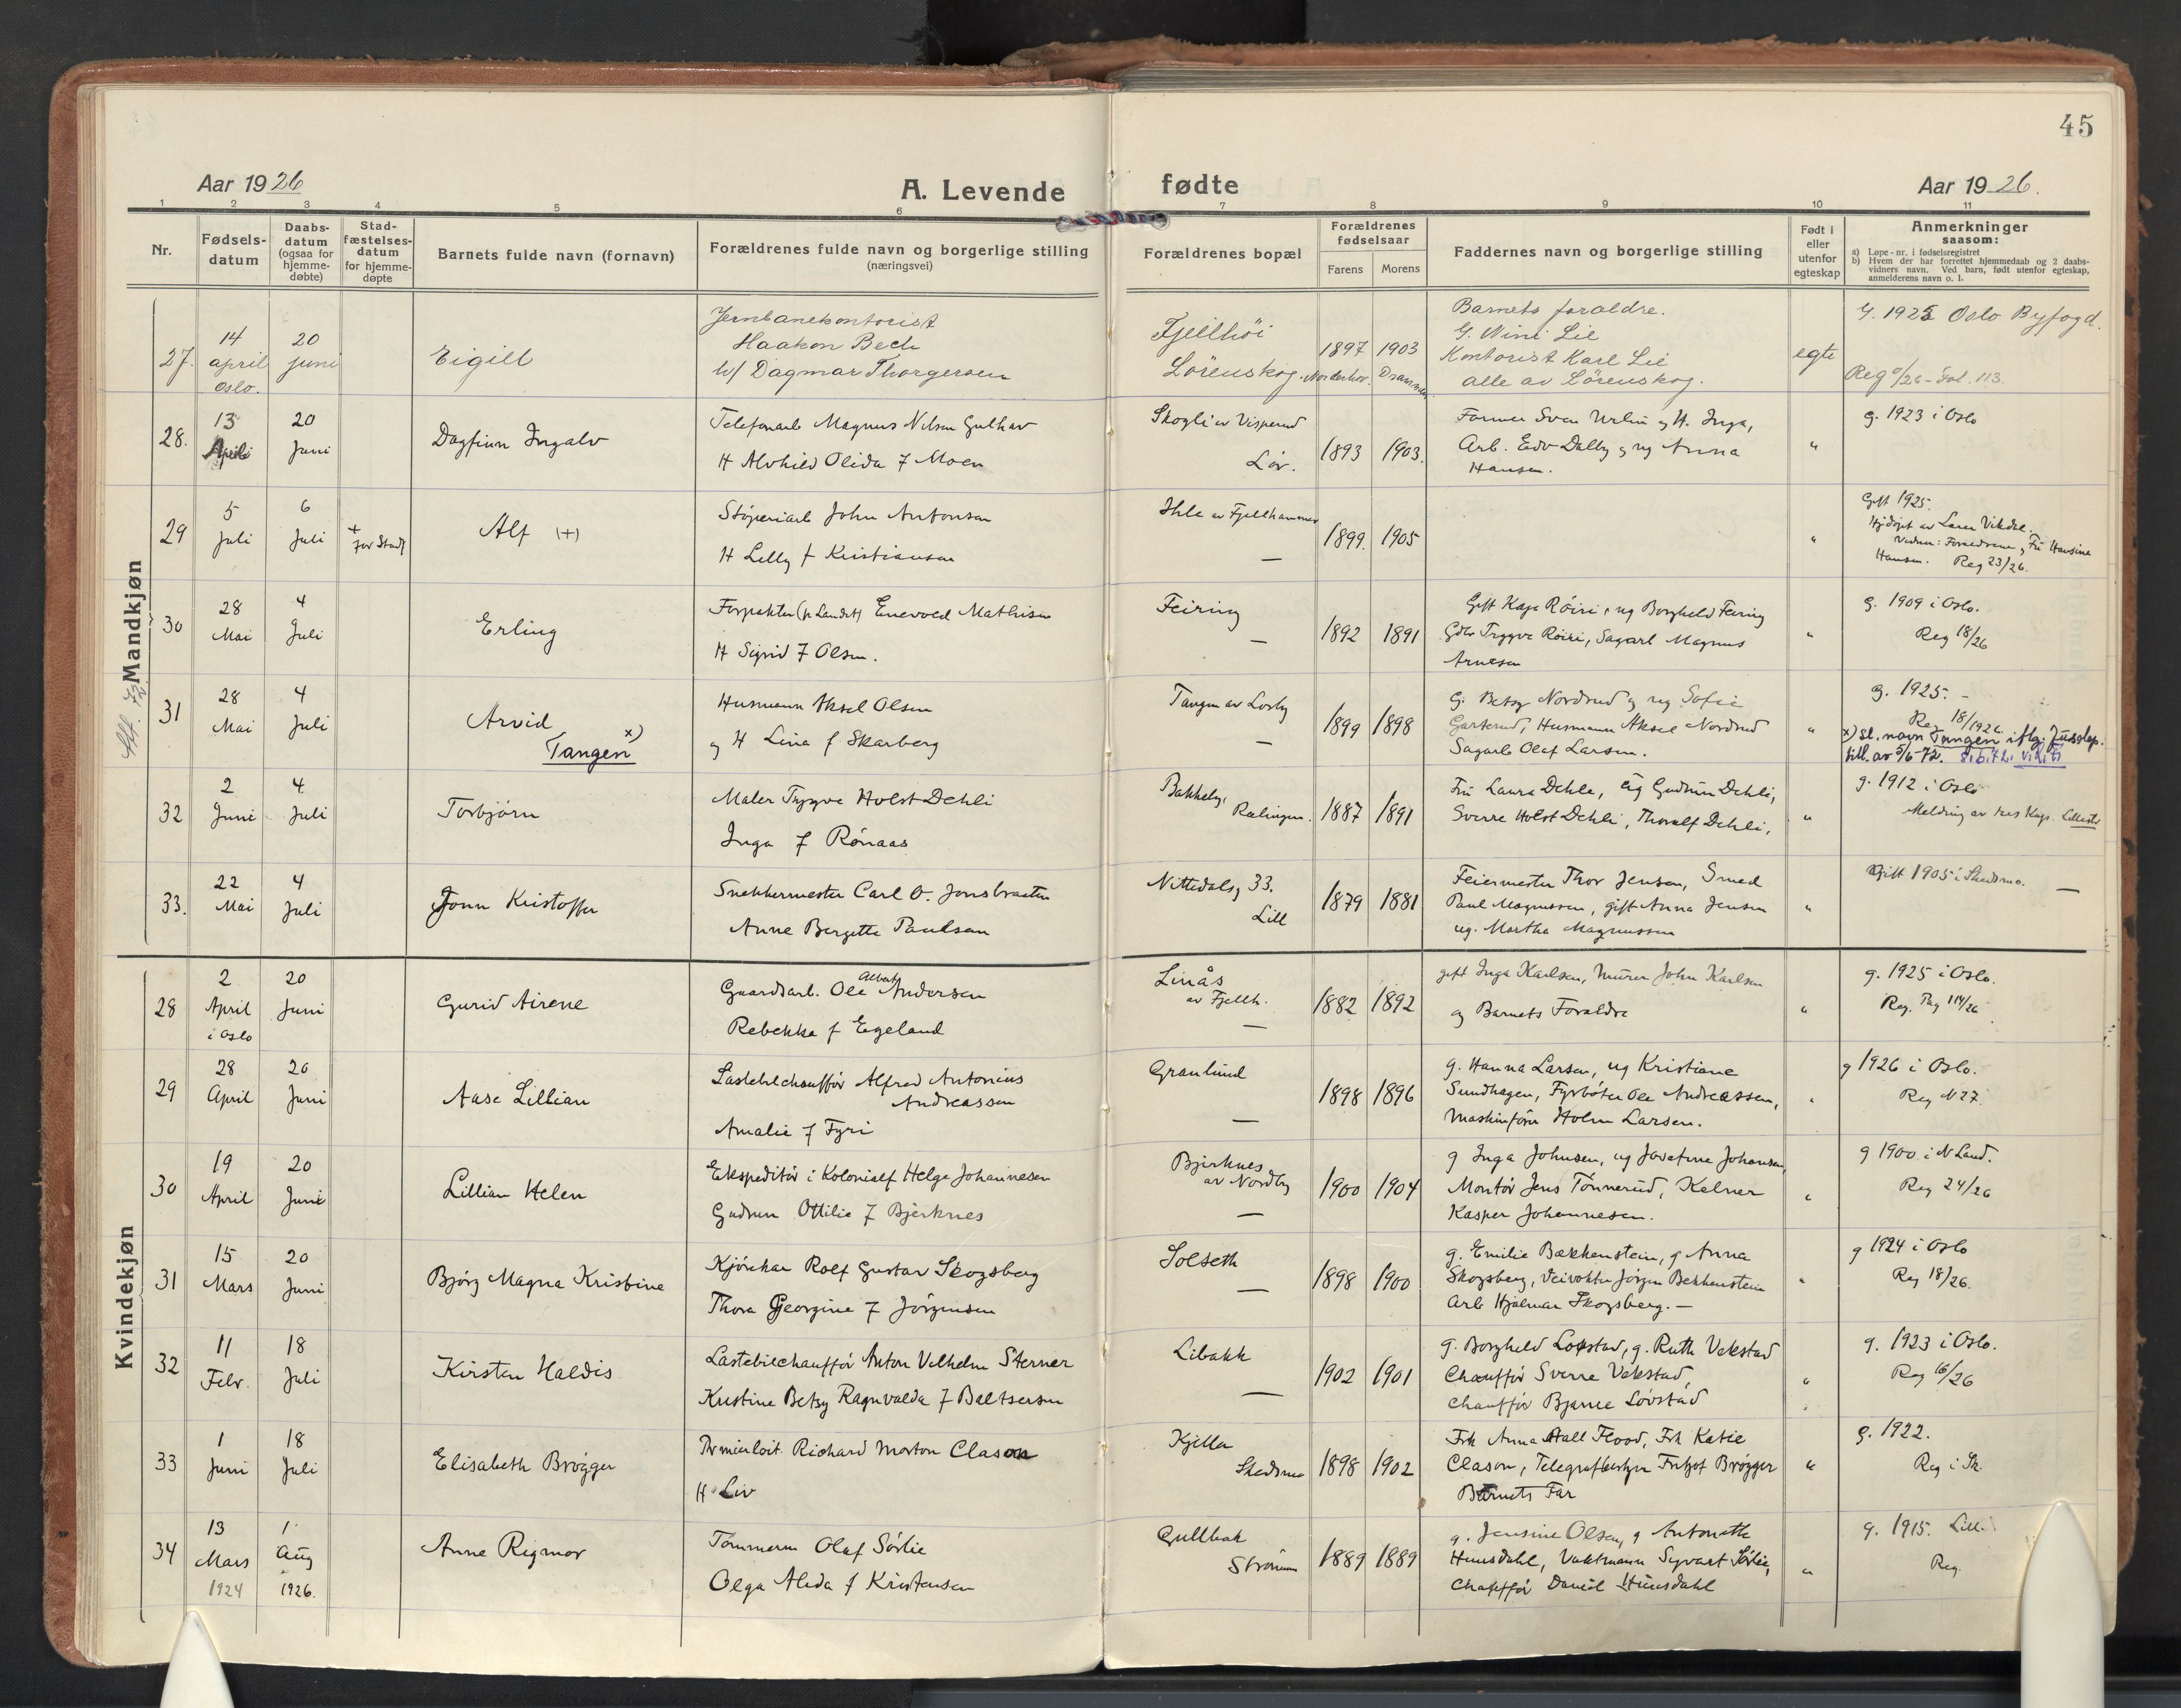 45
Aar 1926
A. Levende fødte
Aar 1926.
1 2 3 4 5 6 7 8 9 10 11
Nr.
Fødsels-
datum
Daabs-
datum
(ogsaa for
hjemme-
døbte)
Stad-
fæstelses-
datum
for hjemme-
døpte
Barnets fulde navn (fornavn)
Forældrenes fulde navn og borgerlige stilling
(næringsvei)
Forældrenes bopæl
Forældrenes
fødselsaar
Farens Morens
Faddernes navn og borgerlige stilling
Født i
eller
utenfor
egteskap
Anmerkninger
saasom:
a) Løpe-nr. i fødselsregistret
b) Hvem der har forrettet hjemmedaab og 2 daabs-
vidners navn. Ved barn, født utenfor egteskap,
anmelderens navn o. l.
Mandkjøn
27.
14
april
Oslo.
20
juni
Eigill
Jernbanekontorist
Haakon Bech
h/ Dagmar Thorgersen
Fjellhöi
Lörenskog.
1897 1903
Norderhov. Drammen
Barnets foraldre.
G. Nini Lie
Kontorist Karl Lie
alle av Lörenskog.
egte
G. 1925 Oslo Byfogd.
Reg /26 - Fol. 113.
28.
13
April
20
Juni
Dagfinn Ingalv
Telefonarb Magnus Nilsen Gulhav
H Alvhild Olida f Moen
Skogli av Visperud
Löv.
1893 1903.
Former Sven og H. Inga,
Arb. Edv Dalby og ug Anna
Hansen.
"
g. 1923 i Oslo
29
5
Juli
6
Juli
+
for Stadf
Alf (+)
Støperiarb John Antonsen
H Lilly f Kristiansen
Ihle av Fjellhammer
—
1899. 1905
"
Gift 1925.
Hjdøpt av Vikdal.
Vidner: Foreldrene, Fru Hansine
Hansen. Reg 23/26.
30
28
Mai
4
Juli
Erling
Forpakter Enevold Mathisen
H Sigrid f Olsen.
Feiring
—
1892 1891
Gift Kaja Röiri, ug Borghild Feiring
Gdbr Trygve Röiri, Sagarb Magnus
Arnesen
"
g. 1909 i Oslo.
Reg 18/26
31
28
Mai
4
Juli
Arvid
Tangen x)
Husmann Aksel Olsen
og H Lina f Skarberg
Tangen av Losby
—
1899 1898
G. Betsy Nordrud og ug Sofie
Garterud, Husmann Aksel Nordrud
Sagarb Olaf Larsen.
"
g. 1925. -
Reg 18/1926
x) sl. navn Tangen iflg. Jusdep.
till. av 5/6-72.
32
2
Juni
4
Juli
Torbjörn
Maler Trygve Holst Dehli
Inga f Rønaas
Bakkeby,
Rælingen.
1887 1891
Fru Laura Dehle, ug Gudrun Dehli,
Sverre Holst Dehli, Thoralf Dehli,
"
g. 1912 i Oslo
Melding av res Kap. Lillestr
33.
22
Mai
4
Juli
Jonn Kristoffer
Snekkermester Carl O. Jonsbraaten
Anne Bergette Paulsen
Nittedalsg 33.
Lill
1879 1881
Feiermester Thor Jensen, Smed
Paul Magnussen, gift Anna Jensen
ug. Martha Magnussen
"
Gift 1905 i Skedsmo. —
Kvindekjøn
28
2
April
i Oslo
20
Juni
Gurid Airene
Gaardsarb. Ole Albert Andersen
Rebekka f Egeland
Linås
av Fjellh.
—
1882 1892
gift Inga Karlsen, Murer John Karlsen
og Barnets Foraldre
"
g. 1925 i Oslo.
Reg. Pag 114/26
29
28
April
20
Juni
Aase Lillian
Lastebilchaufför Alfred Antonius
Andreassen
Amalie f Fyri
Granlund
—
1898 1896
g. Hanna Larsen, ug Kristiane
Sundhagen, Fyrböter Ole Andreassen,
Maskinförer Holm Larsen.
"
g 1926 i Oslo.
Reg N 27.
30
19
April
20
Juni
Lillian Helen
Ekspeditör i Kolonialf Helge Johannesen
Gudrun Ottilie f Bjerknes
Bjerknes
av Nordby
—
1900 1904
g Inga Johnsen, ug Josefine Johansen,
Montör Jens Tönnerud, Kelner
Kasper Johannesen.
"
g 1900 i N Land.
Reg 24/26
31
15
Mars
20
Juni
Bjørg Magna Kristine
Kjörekar Rolf Gustav Skogsberg
Thora Georgine f Jörgensen
Solseth
—
1898 1900
g. Emilie Bækkenstein, g Anna
Skogsberg, Veivokter Jörgen Bekkenstein
Arb Hjalmar Skogsberg. —
"
g 1924 i Oslo
Reg 18/26.
32
11
Febr.
18
Juli
Kirsten Haldis
Lastebilchaufför Anton Vilhelm Sterner
Kristine Betsy Ragnvalda f Baltsersen
Libakk
—
1902 1901
g. Borghild Lovstad, g. Ruth Vekstad
Chaufför Sverre Vekstad,
Chauffør Bjarne Lövstad
"
g. 1923 i Oslo.
Reg 16/26
33
1
Juni
18
Juli
Elisabeth Brøgger
Premierløit Richard Morton Clason
H Liv
Kjeller
Skedsmo
1898 1902
Frk Anna Hall Flood, Frk Katie
Clason, Telegrafbestyrer Fritjof Brøgger
Barnets Far
"
g. 1922.
Reg i Sk.
34
13
Mars
1924
1
Aug
1926.
Anne Rigmor
Tömmerm Olaf Sörlie
Olga Alida f Kristensen
Gullbak
Strømmen
1889 1889
g. Jensine Olsen, g Antonette
Huusdahl, Vaktmann Syvart Sørlie,
Chauffør Daniel Huusdahl
"
g. 1915. Lill.
Reg.